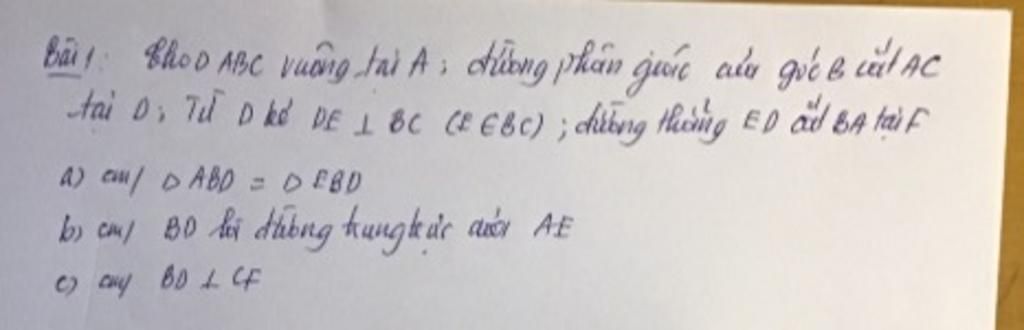 Bài 1: Cho Δ ABC vuông tại A; đường phân giác của góc B cắt AC
tại D; Từ D kẻ DE ⊥ BC (E ∈ BC); đường thẳng ED cắt BA tại F
a) cm/ Δ ABD = Δ EBD
b) cm/ BD là đường trung trực của AE
c) cm/ BD ⊥ CF